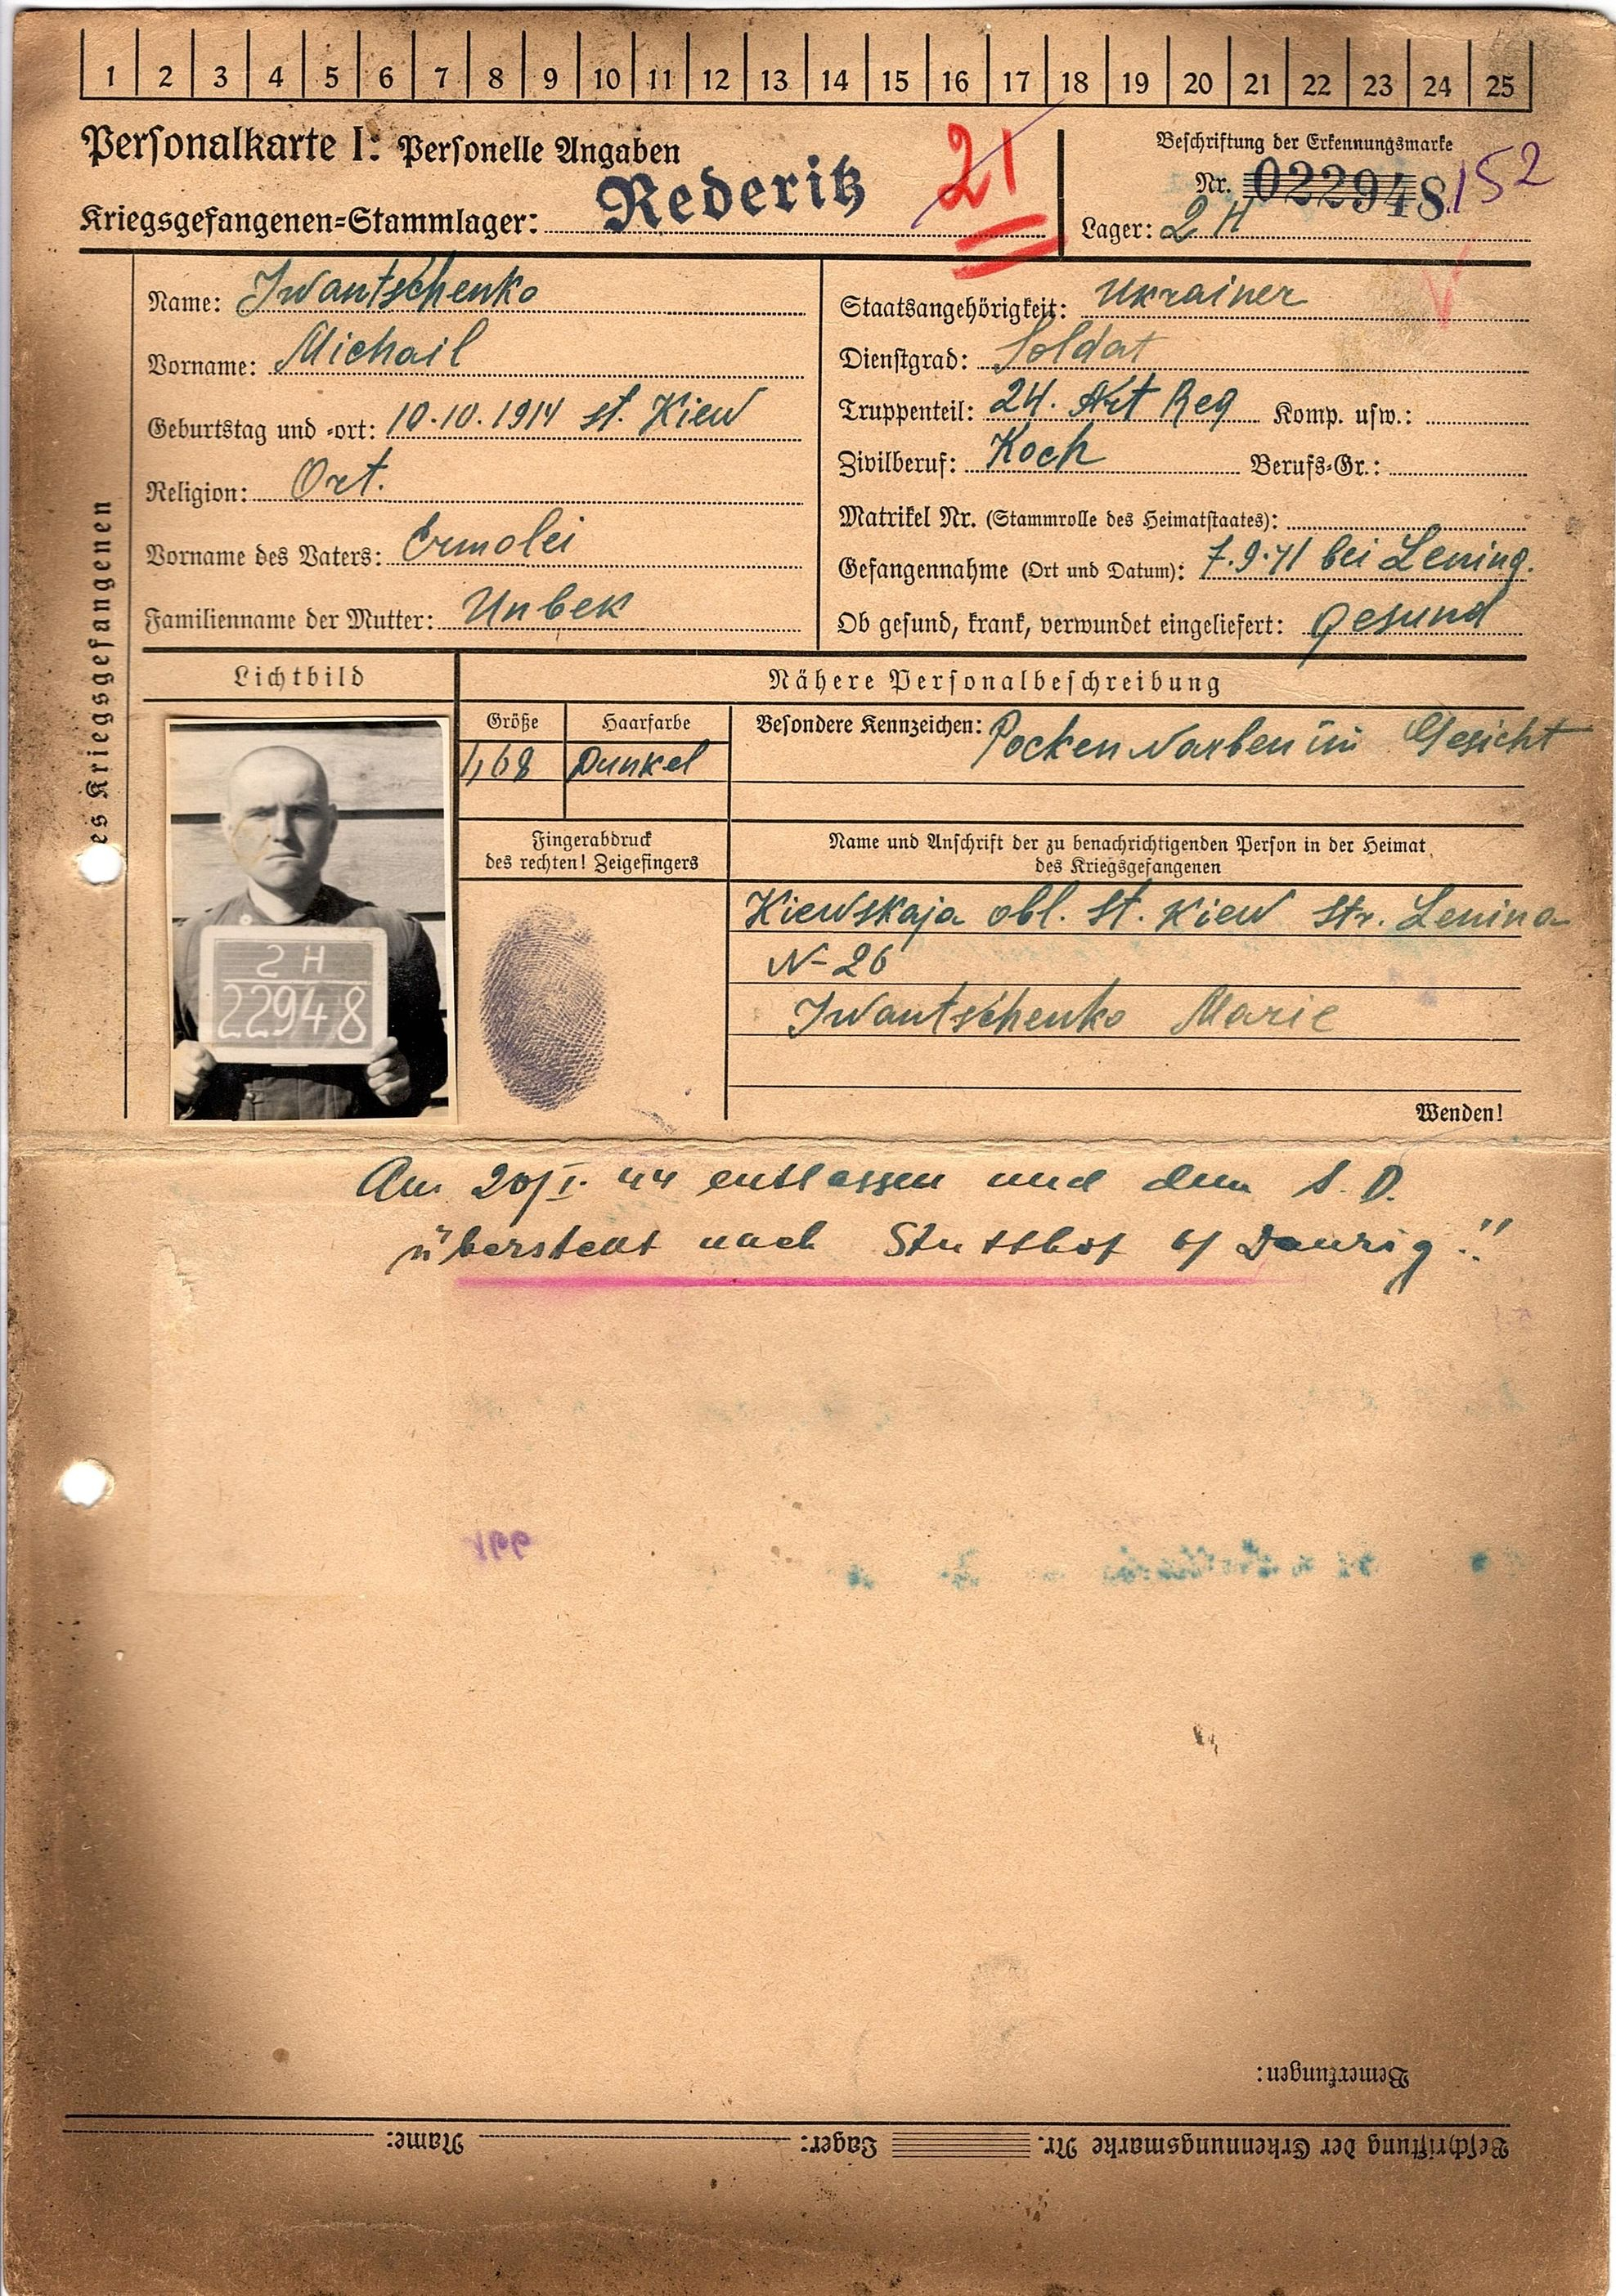 1 2 3 4 5 6 7 8 9 10 11 12 13 14 15 16 17 18 19 20 21 22 23 24 25
Personalkarte I: Personelle Angaben
21
Beschriftung der Erkennungsmarke
Rederitz
Nr. 022948 152
Kriegsgefangenen-Stammlager:
Lager: 2 H
Name: Iwantschenko
Vorname: Michail
Geburtstag und -ort: 10.10.1914 st. Kiew
Religion: Ort.
Vorname des Vaters: Ermolei
Familienname der Mutter: Unbek
Staatsangehörigkeit: Ukrainer
Dienstgrad: Soldat
Truppenteil: 24. Art Reg Komp. usw.:
Zivilberuf: Koch Berufs-Gr.:
Matrikel Nr. (Stammrolle des Heimatstaates):
Gefangennahme (Ort und Datum): 7.9.41 bei Lening.
Ob gesund, krank, verwundet eingeliefert: gesund
es Kriegsgefangenen
Lichtbild
Nähere Personalbeschreibung
Größe Haarfarbe
1,68 Dunkel
Besondere Kennzeichen: Pocken Narben im Gesicht
2 H
22948
Fingerabdruck
des rechten! Zeigefingers
Name und Anschrift der zu benachrichtigenden Person in der Heimat
des Kriegsgefangenen
Kiewskaja obl. st. Kiew str. Lenina
N-26
Iwantschenko Marie
Wenden!
Am 20/I. 44 entlassen und dem S. D.
überstellt nach Stutthof b/ Danzig!!
Bemerkungen:
Beschriftung der Erkennungsmarke Nr. Lager: Name: